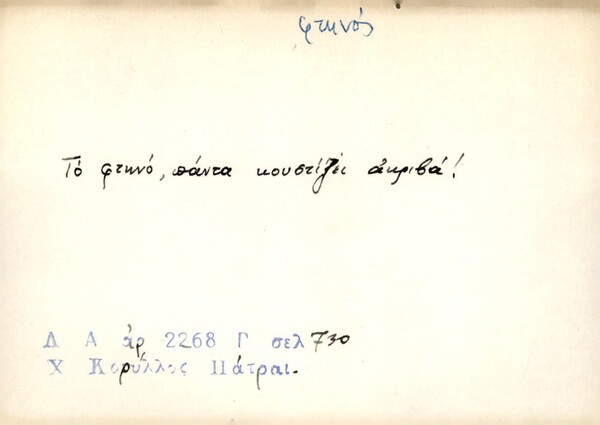 φτηνός
Τό φτηνό, πάντα κουστίζει ἀκριβά!
Λ Α ἀρ 2268 Γ σελ 730
Χ Κορύλλος Πάτραι.